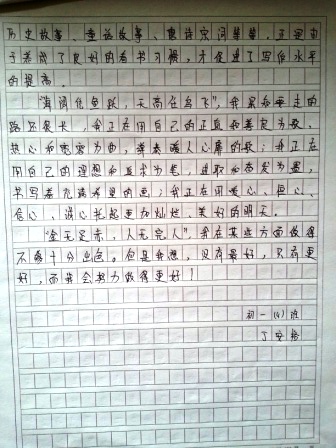 历史故事、童话故事、唐诗宋词等等。正是由
于养成了良好的看书习惯，才促进了写作水平
的提高。
“海阔凭鱼跃，天高任鸟飞”，我要走的
路还很长，我正在用自己的正直和善良为歌，
热心和宽容为曲，奏暖人心扉的歌；我正在
用自己的理想和追求为笔，进取和奋发为墨，
书写着充满希望的画；我正在用爱心、恒心、
信心、决心托起更加灿烂、美好的明天。
“金无足赤，人无完人”，我在某些方面做得
不够十分出色。但是我想，没有最好，只有更
好，而我会努力做得更好！
初一(4)班
丁